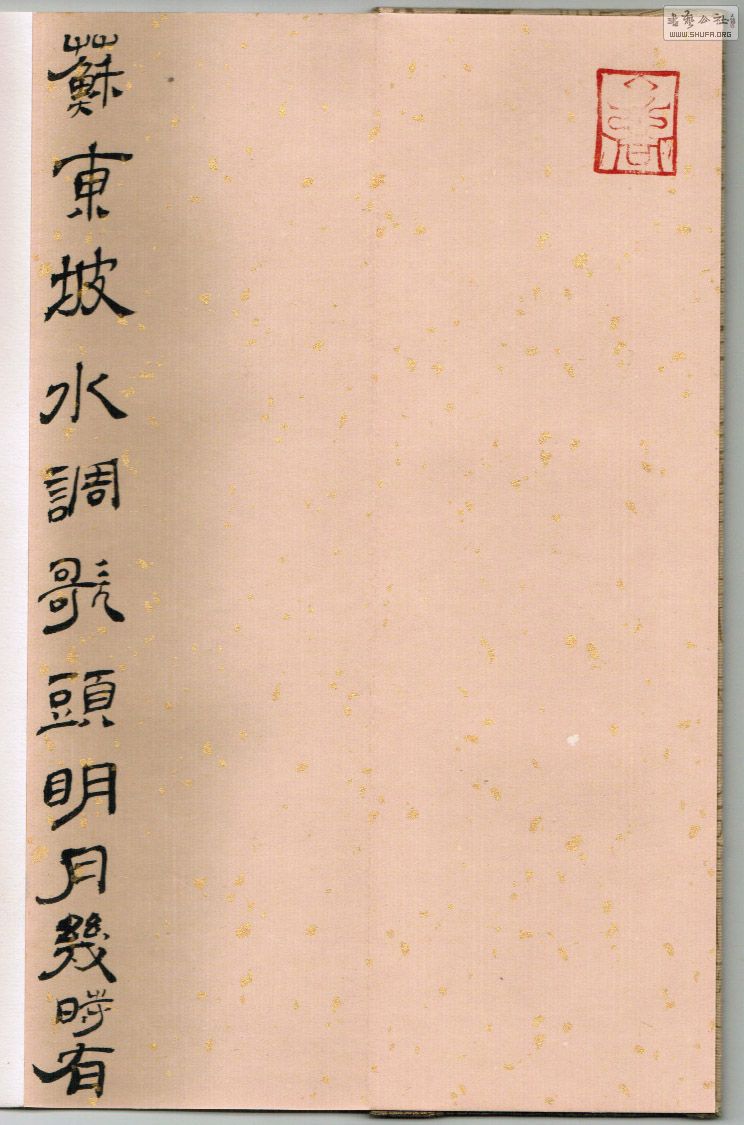 蘇東坡水調歌頭明月幾時有
書藝公社
WWW.SHUFA.ORG